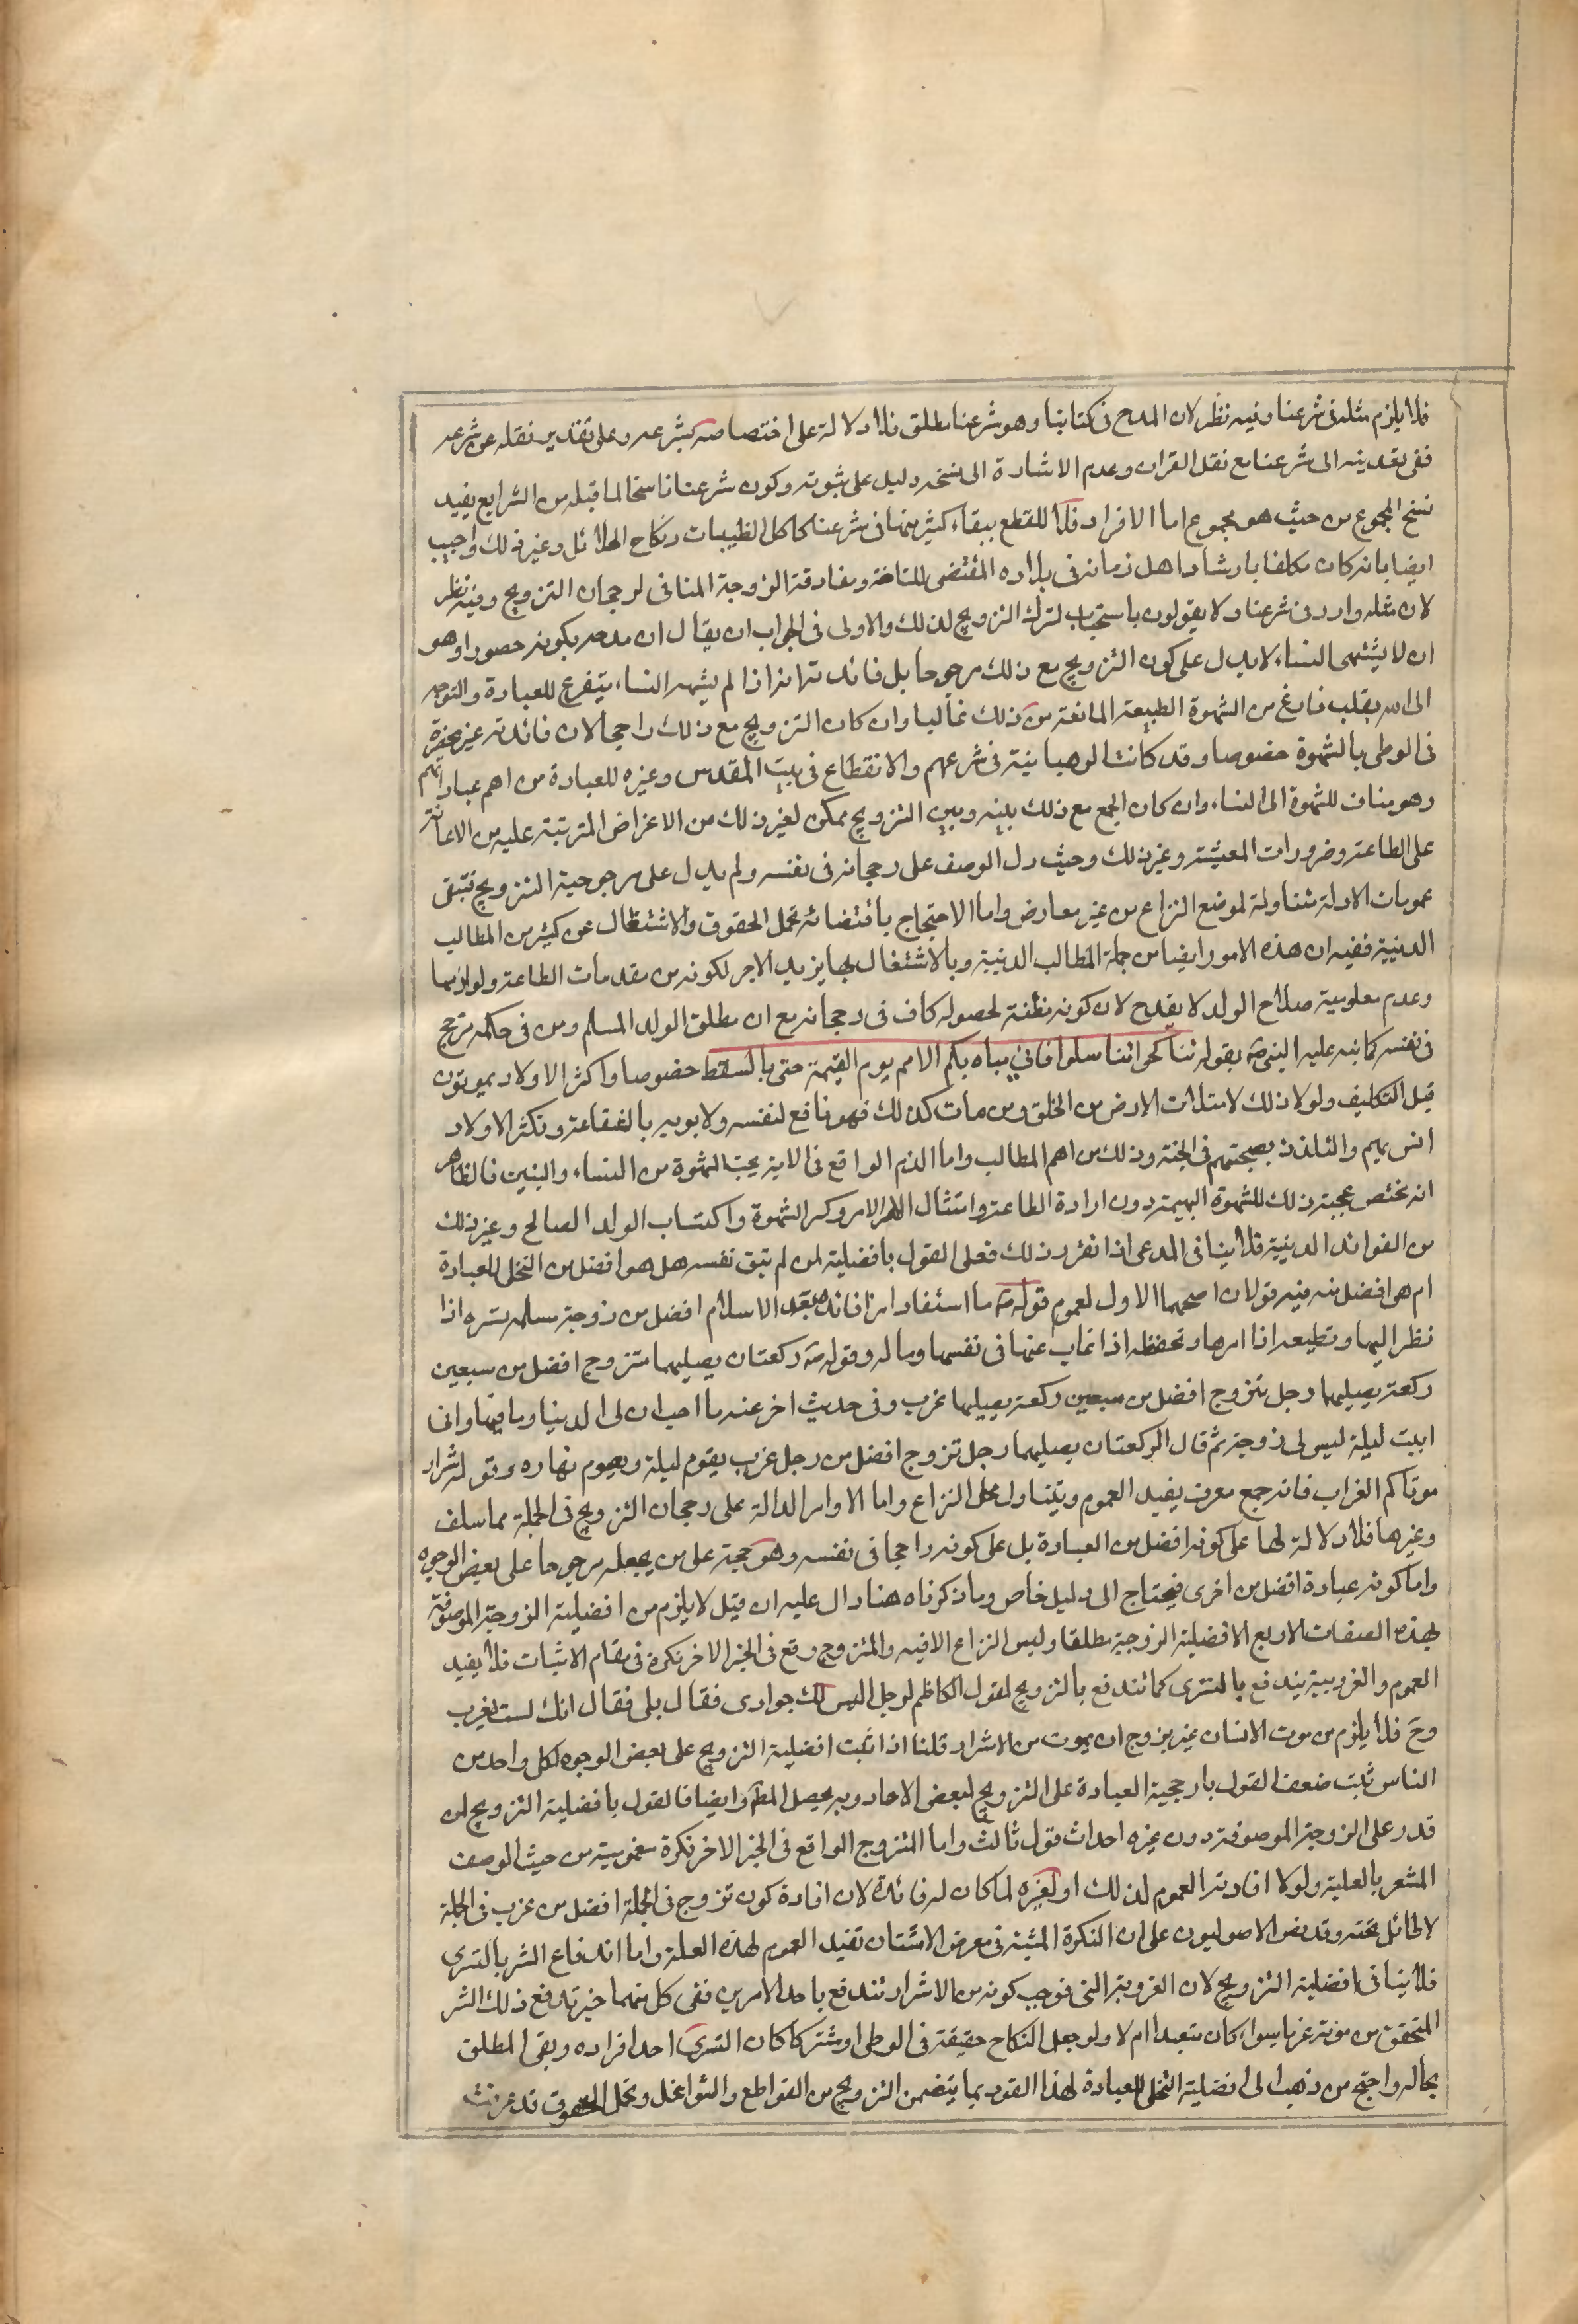 فلا يلزم مثله فى شرعنا وفيه نظر لان المدح فى كتابنا وهو شرعنا مطلق فلا دلالة على اختصاصه بشرعه وعلى تقدير نقله عن شرعه
ففى تعديته الى شرعنا مع نقل القران وعدم الاشارة الى نسخه دليل على ثبوته وكون شرعنا ناسخا لما قبله من الشرايع يفيد
نسخ المجموع من حيث هو مجموع اما الافراد فلا للقطع ببقاء كثير منها فى شرعنا كاكل الطيبات ونكاح الحلائل وغير ذلك واجيب
ايضا بانه كان مكلفا بارشاد اهل زمانه فى بلاده المقتضى للسياحة ومفارقة الزوجة المنافى لرجحان التزويج وفيه نظر
لان مثله وارد فى شرعنا ولا يقولون باستحباب لترك التزويج لذلك والاولى فى الجواب ان يقال ان مدحه بكونه حصورا وهو
ان لا يشتهى النساء لا يدل على كون التزويج مع ذلك مرجوحا بل فائدته انه اذا لم يشته النساء يتفرغ للعبادة والتوجه
الى الله بقلب فارغ من الشهوة الطبيعة المانعة من ذلك غالبا وان كان التزويج مع ذلك راجحا لان فائدته غير منحصرة
فى الوطى بالشهوة خصوصا وقد كانت الرهبانية فى شرعهم والانقطاع فى بيت المقدس وغيره للعبادة من اهم عباداتهم
وهو مناف للشهوة الى النساء وان كان الجمع مع ذلك بينه وبين التزويج ممكن لغير ذلك من الاغراض المترتبة عليه من الاعانة
على الطاعة وضرورات المعيشة وغير ذلك وحيث دل الوصف على رجحانه فى نفسه ولم يدل على مرجوحية التزويج فتبقى
عمومات الادلة متناولة لموضع النزاع من غير معارض واما الاحتجاج باقتضائه تحمل الحقوق والاشتغال عن كثير من المطالب
الدينية ففيه ان هذه الامور ايضا من جملة المطالب الدينية وبالاشتغال بها يزيد الاجر لكونه من مقدمات الطاعة ولوازمها
وعدم معلومية صلاح الولد لا يقدح لان كونه مظنة لحصوله كاف فى رجحانه مع ان مطلق الولد المسلم ومن فى حكمه مرجح
فى نفسه كما نبه عليه النبى ص بقوله تناكحوا تناسلوا فانى مباه بكم الامم يوم القيمة حتى بالسقط خصوصا واكثر الاولاد يموتون
قبل التكليف ولولا ذلك لامتلات الارض من الخلق ومن مات كذلك فهو نافع لنفسه ولابويه بالشفاعة وتكثر الاولاد
انس بهم والتلذذ بصحبتهم فى الجنة وذلك من اهم المطالب واما الذم الواقع فى الاية بحب الشهوة من النساء والبنين فالظاهر
انه مختص بمحبة ذلك للشهوة البهيمة دون ارادة الطاعة وامتثال الامر وكسر الشهوة واكتساب الولد الصالح وغير ذلك
من الفوائد الدينية فلا ينافى المدعى اذا تقرر ذلك فعلى القول بافضلية لمن لم تتق نفسه هل هو افضل من التخلى للعبادة
ام هى افضل منه فيه قولان اصحهما الاول لعموم قوله ص ما استفاد امرا فائدة بعد الاسلام افضل من زوجة مسلمة تسره اذا
نظر اليها وتطيعه اذا امرها وتحفظه اذا غاب عنها فى نفسها وماله وقوله ص ركعتان يصليهما متزوج افضل من سبعين
ركعة يصليها رجل تزوج افضل من سبعين ركعة يصليها عزب وفى حديث اخر عنه ما احب ان لى الدنيا وما فيها وانى
ابيت ليلة ليس لى زوجة ثم قال الركعتان يصليهما رجل تزوج افضل من رجل عزب يقوم ليلة ويصوم نهاره وقوله شرار
موتاكم العزاب فانه جمع معرف يفيد العموم ويتناول محل النزاع واما الاوامر الدالة على رجحان التزويج فى الجملة مما سلف
وغيرها فلا دلالة لها على كونه افضل من العبادة بل على كونه راجحا فى نفسه وهو حجة على من يجعله مرجوحا على بعض الوجوه
واما كونه عبادة افضل من اخرى فيحتاج الى دليل خاص وما ذكرناه هنا دال عليه ان قيل لا يلزم من افضلية الزوجة الموصوفة
بهذه الصفات الاربع الافضلية الزوجية مطلقا وليس النزاع الا فيه والتزوج وقع فى الخبر الاخر نكرة فى مقام الاثبات فلا يفيد
العموم والعزوبية يندفع بالتسرى كما تندفع بالتزويج لقول الكاظم لرجل اليس لك جوارى فقال بلى فقال انك لست بعزب
وح فلا يلزم من موت الانسان غير متزوج ان يموت من الاشرار قلنا اذا ثبت افضلية التزويج على بعض الوجوه لكل واحد من
الناس ثبت ضعف القول بارجحية العبادة على التزويج لبعض الاحاد وبه يحصل المط وايضا فالقول بافضلية التزويج لمن
قدر على الزوجة الموصوفة دون غيره احداث قول ثالث واما التزوج الواقع فى الخبر الاخر نكرة فعموميته من حيث الوصف
المشعر بالعلية ولولا افادته العموم لذلك او لغيره لما كان له فائدة لان افادة كون تزوج فى الجملة افضل من عزب فى الجملة
لا طائل تحته وقد نص الاصوليون على ان النكرة المثبتة فى معرض الامتنان تفيد العموم لهذه العلة واما اندفاع الشر بالتسرى
فلا ينافى افضلية التزويج لان العزوبة التى توجب كونه من الاشرار تندفع باحد الامرين ففى كل منهما خير يدفع ذلك الشر
المتحقق من موته عزبا سواء كان متعبدا ام لا ولو جعل النكاح حقيقة فى الوطى او مشتركا كان التسرى احد افراده وبقى المطلق
بحاله واحتج من ذهب الى افضلية التخلى للعبادة لهذا الفرد بما يتضمن التزويج من القواطع والشواغل وتحمل الحقوق قد عرفت